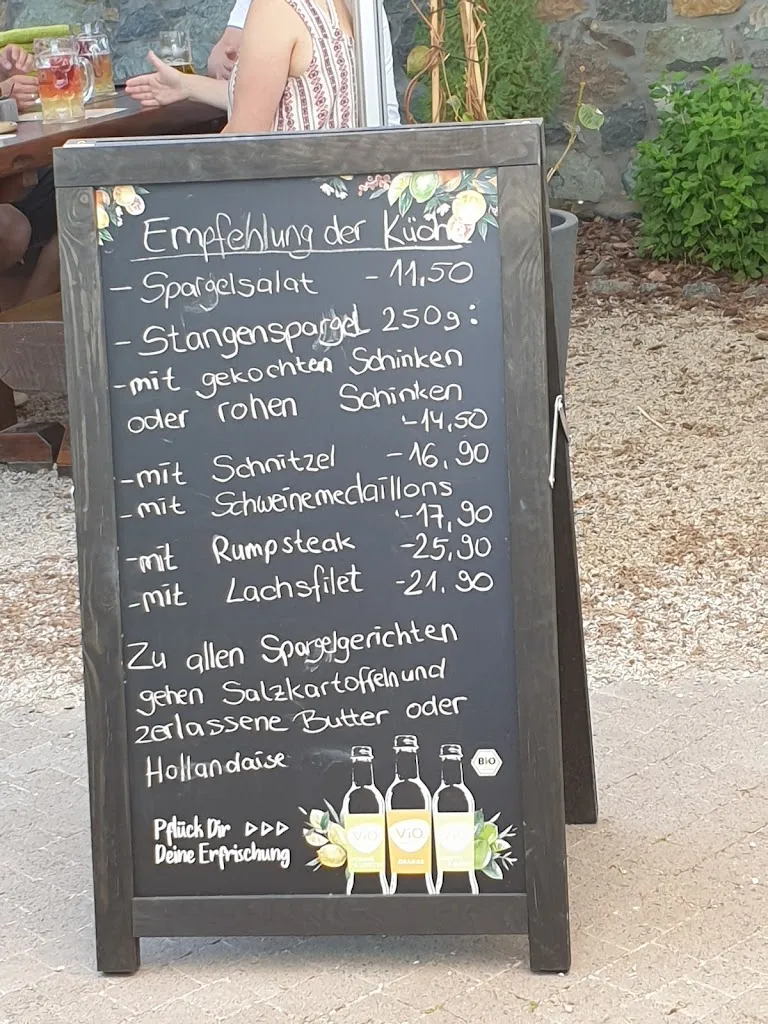 Empfehlung der Küche
- Spargelsalat - 11,50
- Stangenspargel 250g:
- mit gekochten Schinken
oder rohen Schinken
- 14,50
- mit Schnitzel - 16,90
- mit Schweinemedaillons
- 17,90
- mit Rumpsteak - 25,90
- mit Lachsfilet - 21.90
Zu allen Spargelgerichten
gehen Salzkartoffeln und
zerlassene Butter oder
Hollandaise
BiO
Pflück Dir ▷▷▷
Deine Erfrischung
ViO ViO ViO
ORANGE